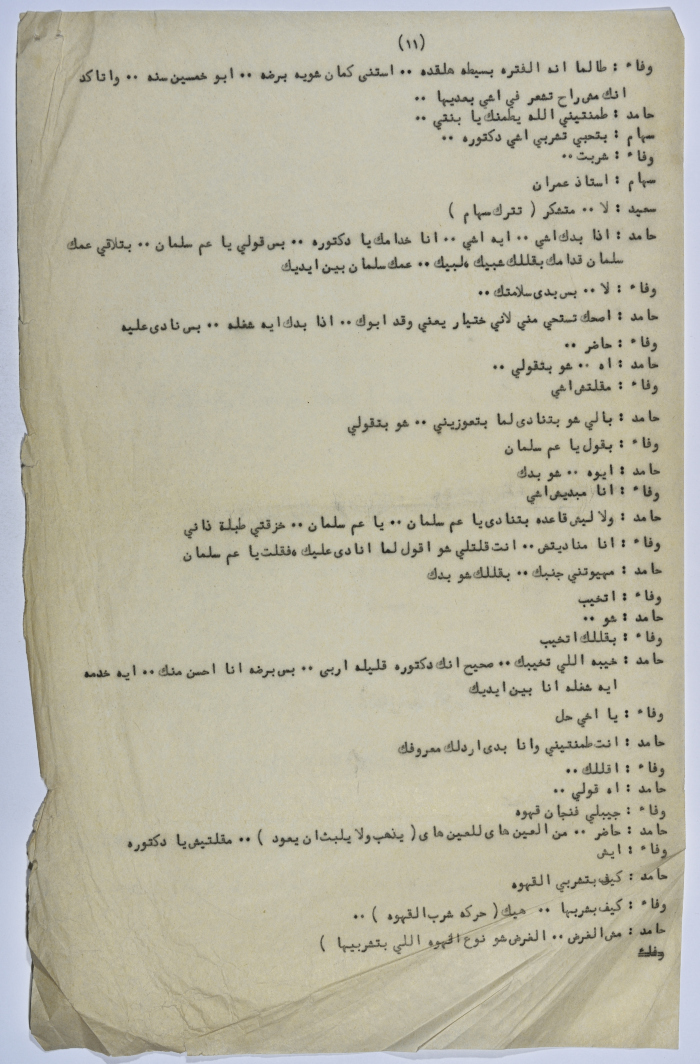 (١١)
وفاء : طالما انه الفتره بسيطه هلقده ٠٠ استنى كمان شويه برضه ٠٠ ابو خمسين سنه ٠٠ واتاكد
انك مش راح تشعر في اشي بعديها ٠٠
حامد : طمنتيني الله يطمنك يا بنتي ٠٠
سهام : بتحبي تشربي اشي دكتوره ٠٠
وفاء : شربت ٠٠
سهام : استاذ عمران
سعيد : لا ٠٠ متشكر ( تترك سهام )
حامد : اذا بدك اشي ٠٠ ايه اشي ٠٠ انا خدامك يا دكتوره ٠٠ بس قولي يا عم سلمان ٠٠ بتلاقي عمك
سلمان قدامك بقللك شبيك لبيك ٠٠ عمك سلمان بين ايديك
وفاء : لا ٠٠ بس بدى سلامتك ٠٠
حامد : اصحك تستحي مني لاني ختيار يعني وقد ابوك ٠٠ اذا بدك ايه شغله ٠٠ بس نادى عليه
وفاء : حاضر ٠٠
حامد : اه ٠٠ شو بتقولي ٠٠
وفاء : مقلتش اشي
حامد : بالي شو بتنادى لما بتعوزيني ٠٠ شو بتقولي
وفاء : بقول يا عم سلمان
حامد : ايوه ٠٠ شو بدك
وفاء : انا مبديش اشي
حامد : ولا ليش قاعده بتنادى يا عم سلمان ٠٠ يا عم سلمان ٠٠ خزقتي طبلة ذاني
وفاء : انا مناديتش ٠٠ انت قلتلي شو اقول لما انادى عليك فقلت يا عم سلمان
حامد : مهيوتني جنبك ٠٠ بقللك شو بدك
وفاء : اتخيب
حامد : شو ٠٠
وفاء : بقللك اتخيب
حامد : خيبه اللي تخيبك ٠٠ صحيح انك دكتوره قليله اربى ٠٠ بس برضه انا احسن منك ٠٠ ايه خدمه
ايه شغله انا بين ايديك
وفاء : يا اخي حل
حامد : انت طمنتيني وانا بدى اردلك معروفك
وفاء : اقللك ٠٠
حامد : اه قولي ٠٠
وفاء : جيبلي فنجان قهوه
حامد : حاضر ٠٠ من العين هاى للعين هاى ( يذهب ولا يلبث ان يعود ) ٠٠ مقلتيش يا دكتوره
وفاء : ايش
حامد : كيف بتشربي القهوه
وفاء : كيف بشربها ٠٠ هيك ( حركه شرب القهوه ) ٠٠
حامد : مش الغرض ٠٠ الغرض شو نوع القهوه اللي بتشربيها )